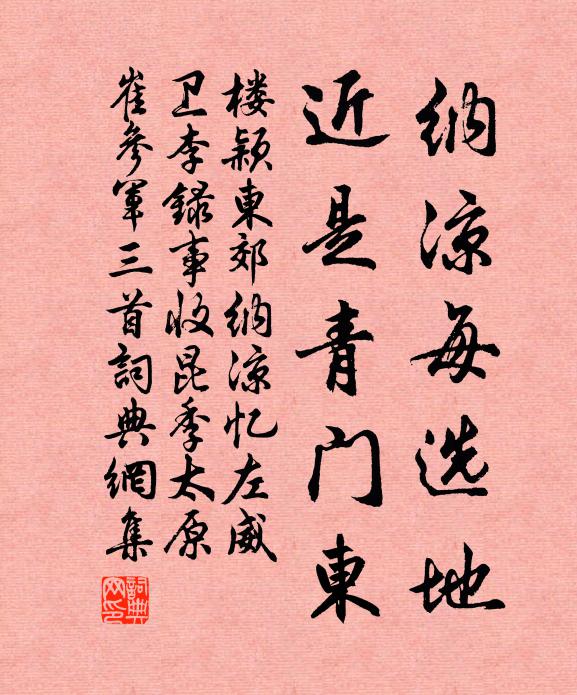 纳凉每选地
近是青门東
楼颖東郊纳凉忆左威
卫李録事收昆季太原
崔参軍三首詞典網集
詞典网印